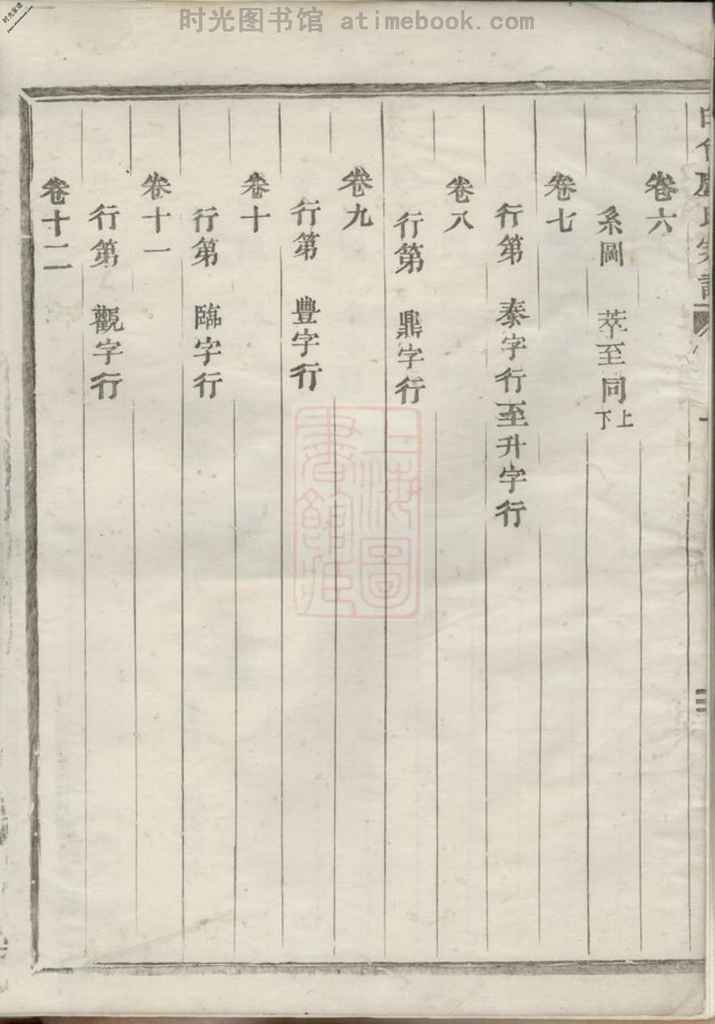 时光图书馆 atimebook.com
卷六
系圖 萃至同上下
卷七
行第 泰字行至升字行
卷八
行第 鼎字行
卷九
行第 豐字行
卷十
行第 臨字行
卷十一
行第 觀字行
卷十二
上海圖書館藏